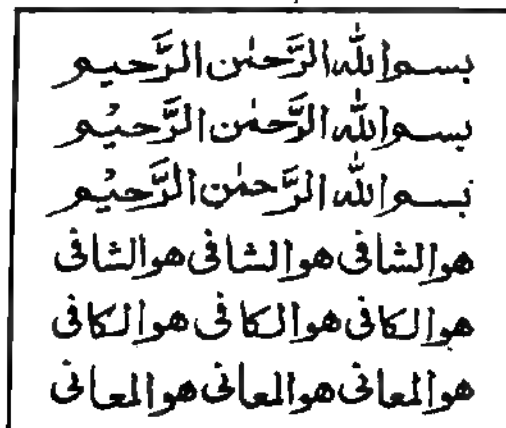 بسم الله الرَّحمٰن الرَّحيم
بسم الله الرَّحمٰن الرَّحيم
بسم الله الرَّحمٰن الرَّحيم
هوالشافی هوالشافی هوالشافی
هوالکافی هوالکافی هوالکافی
هوالمعافی هوالمعافی هوالمعافی